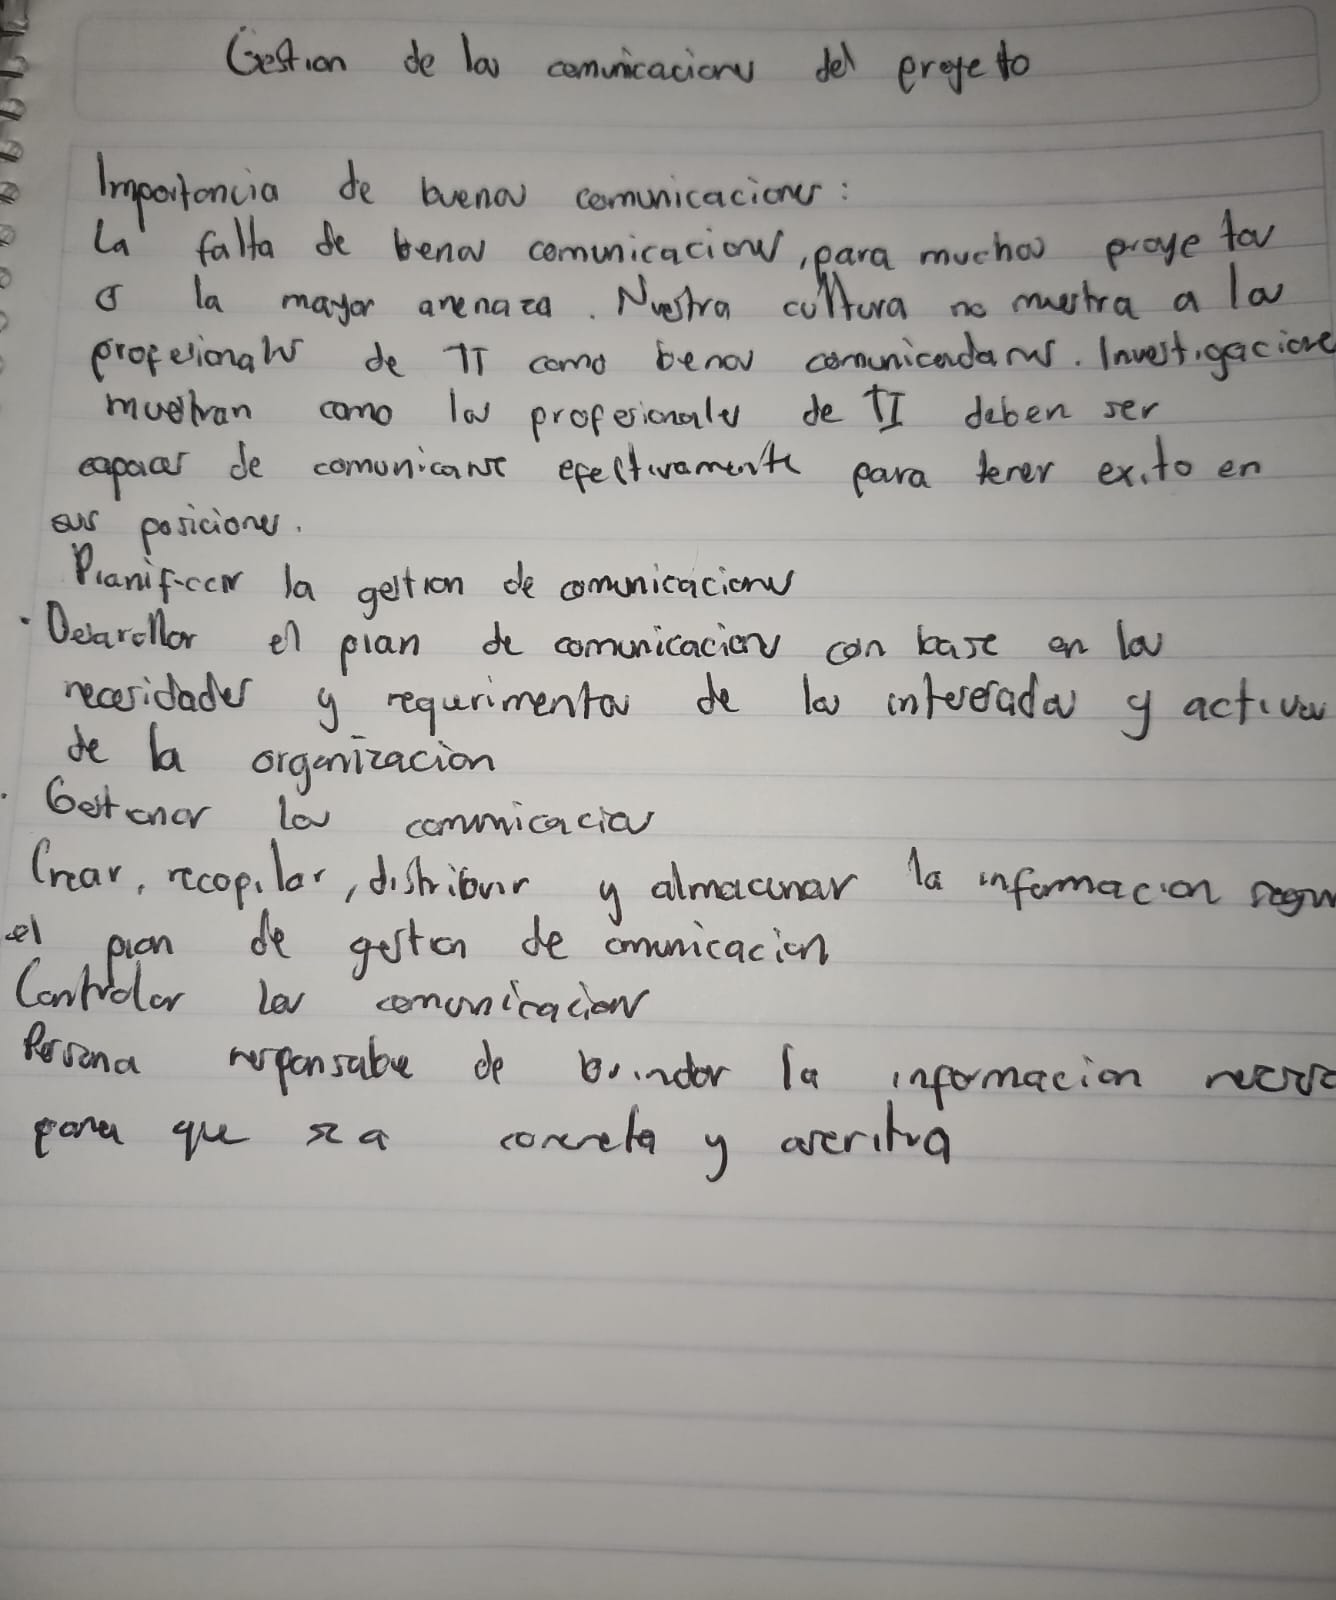 Gestion de las comunicaciones del proyecto
Importancia de buenas comunicaciones:
La falta de benas comunicaciones, para muchos proyectos
es la mayor amenaza. Nuestra cultura no muestra a los
profesionales de TI como benos comunicadores. Investigacione
muestran como los profesionales de TI deben ser
capaces de comunicarse efectivamente para tener exito en
sus posiciones.
Planificar la gestion de comunicaciones
· Desarollar el plan de comunicaciones con base en las
necesidades y requrimentos de los interesados y activos
de la organizacion
· Gestionar las comunicacios
Crear, recopilar, distribuir y almacenar la informacion segun
el plan de gestion de comunicacion
Controlar las comunicaciones
Persona responsable de brindar la informacion
para que sea concreta y asertiva